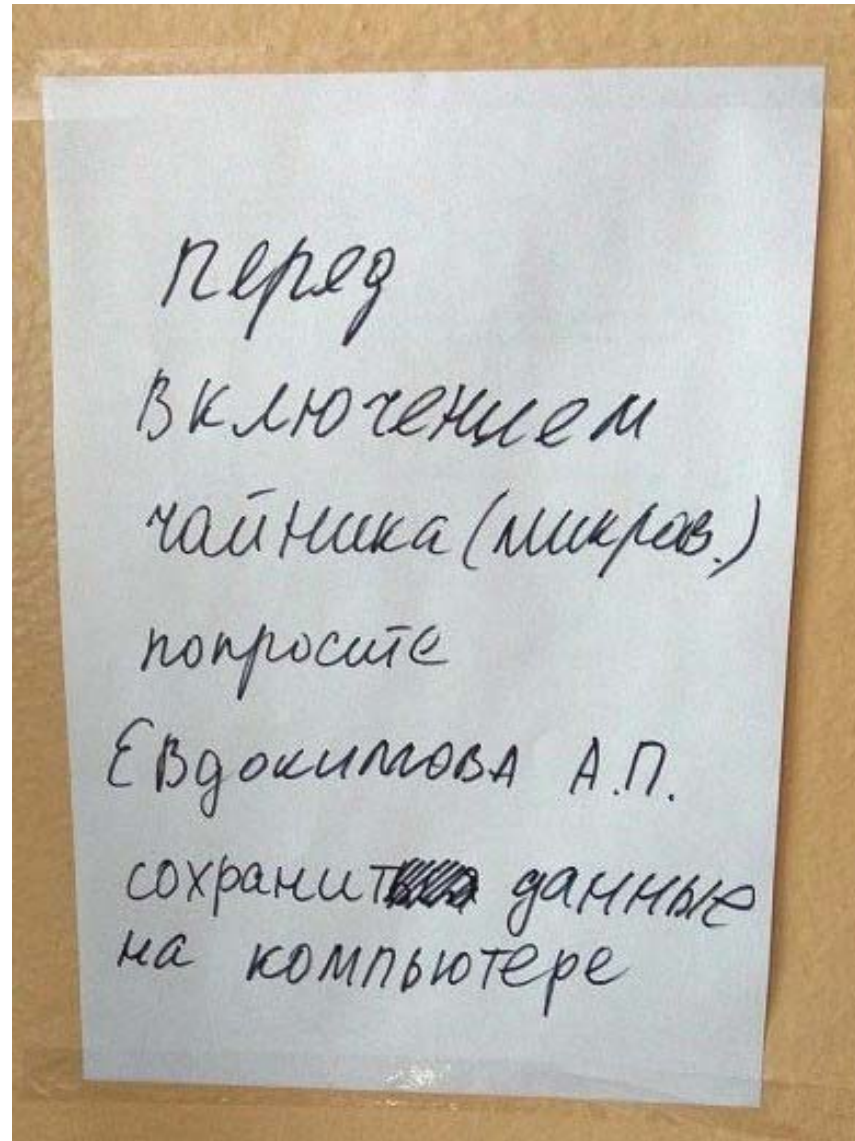 перед
включением
чайника (микров.)
попросите
Евдокимова А.П.
сохранить данные
на компьютере